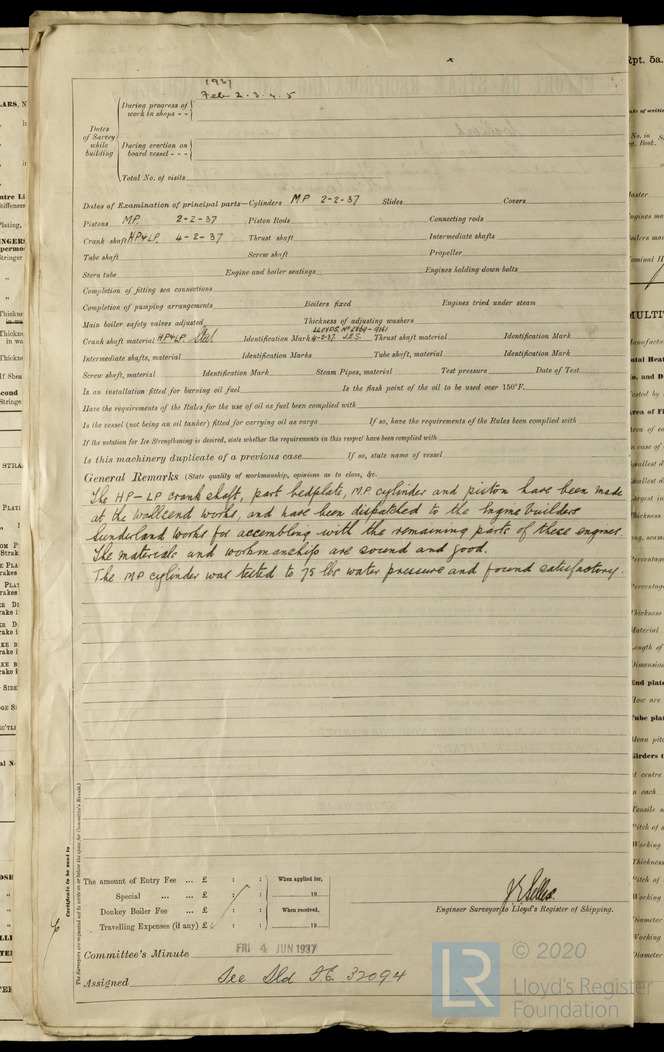 1937
Feb 2. 3. 4. 5
Dates of Survey while building
During progress of work in shops - -
During erection on board vessel - - -
Total No. of visits
Dates of Examination of principal parts—Cylinders MP 2-2-37 Slides Covers
Pistons MP. 2-2-37 Piston Rods Connecting rods
Crank shaft HP&LP. 4-2-37 Thrust shaft Intermediate shafts
Tube shaft Screw shaft Propeller
Stern tube Engine and boiler seatings Engines holding down bolts
Completion of fitting sea connections
Completion of pumping arrangements Boilers fixed Engines tried under steam
Main boiler safety valves adjusted Thickness of adjusting washers
Crank shaft material HP&LP. Steel Identification Mark LLOYDS Nº 4-2-37 J.E.S. Thrust shaft material Identification Mark
Intermediate shafts, material Identification Marks Tube shaft, material Identification Mark
Screw shaft, material Identification Mark Steam Pipes, material Test pressure Date of Test
Is an installation fitted for burning oil fuel Is the flash point of the oil to be used over 150°F.
Have the requirements of the Rules for the use of oil as fuel been complied with
Is the vessel (not being an oil tanker) fitted for carrying oil as cargo If so, have the requirements of the Rules been complied with
If the notation for Ice Strengthening is desired, state whether the requirements in this respect have been complied with
Is this machinery duplicate of a previous case If so, state name of vessel
General Remarks (State quality of workmanship, opinions as to class, &c.
The HP-LP crank shaft, part bedplate, MP cylinder and piston have been made
at the Wallsend works, and have been dispatched to the Engine builders
Sunderland Works for assembling with the remaining parts of these engines.
The materials and workmanship are sound and good.
The MP cylinder was tested to 75 lbs water pressure and found satisfactory.
Certificate to be sent to
(The Surveyors are requested not to write on or below the space for Committee's Minute.)
The amount of Entry Fee ... £ : : When applied for,
Special ... ... £ : : 19
Donkey Boiler Fee ... £ : : When received,
Travelling Expenses (if any) £ : : 19
Engineer Surveyor to Lloyd's Register of Shipping.
Committee's Minute FRI 4 JUN 1937
Assigned See Sld F.E. 32094
© 2020
LR
Lloyd's Register
Foundation
Rpt. 5a.